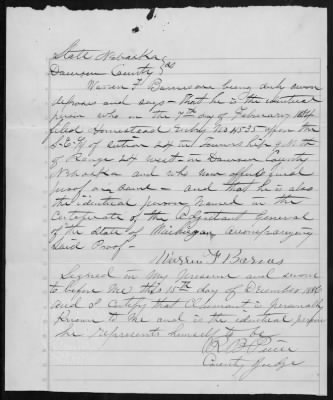 State Nebraska
Dawson County } SS
Warren F. being duly sworn
deposes and says - that he is the identical
person who on the 7th day of February
filed Homestead Entry No 4535 upon the
of Section 24 in Township North
of Range 24 West in Dawson County
Nebraska and who now offers final
proof on same - and that he is also
the identical person named in the
Certificate of the Adjutant General
of the State of Michigan accompanying
Said Proof -
Warren F
Signed in my presence and sworn
to before me this 15th day of December
and I certify that Claimant is personally
Known to me and is the identical person
he represents himself to be
County Judge